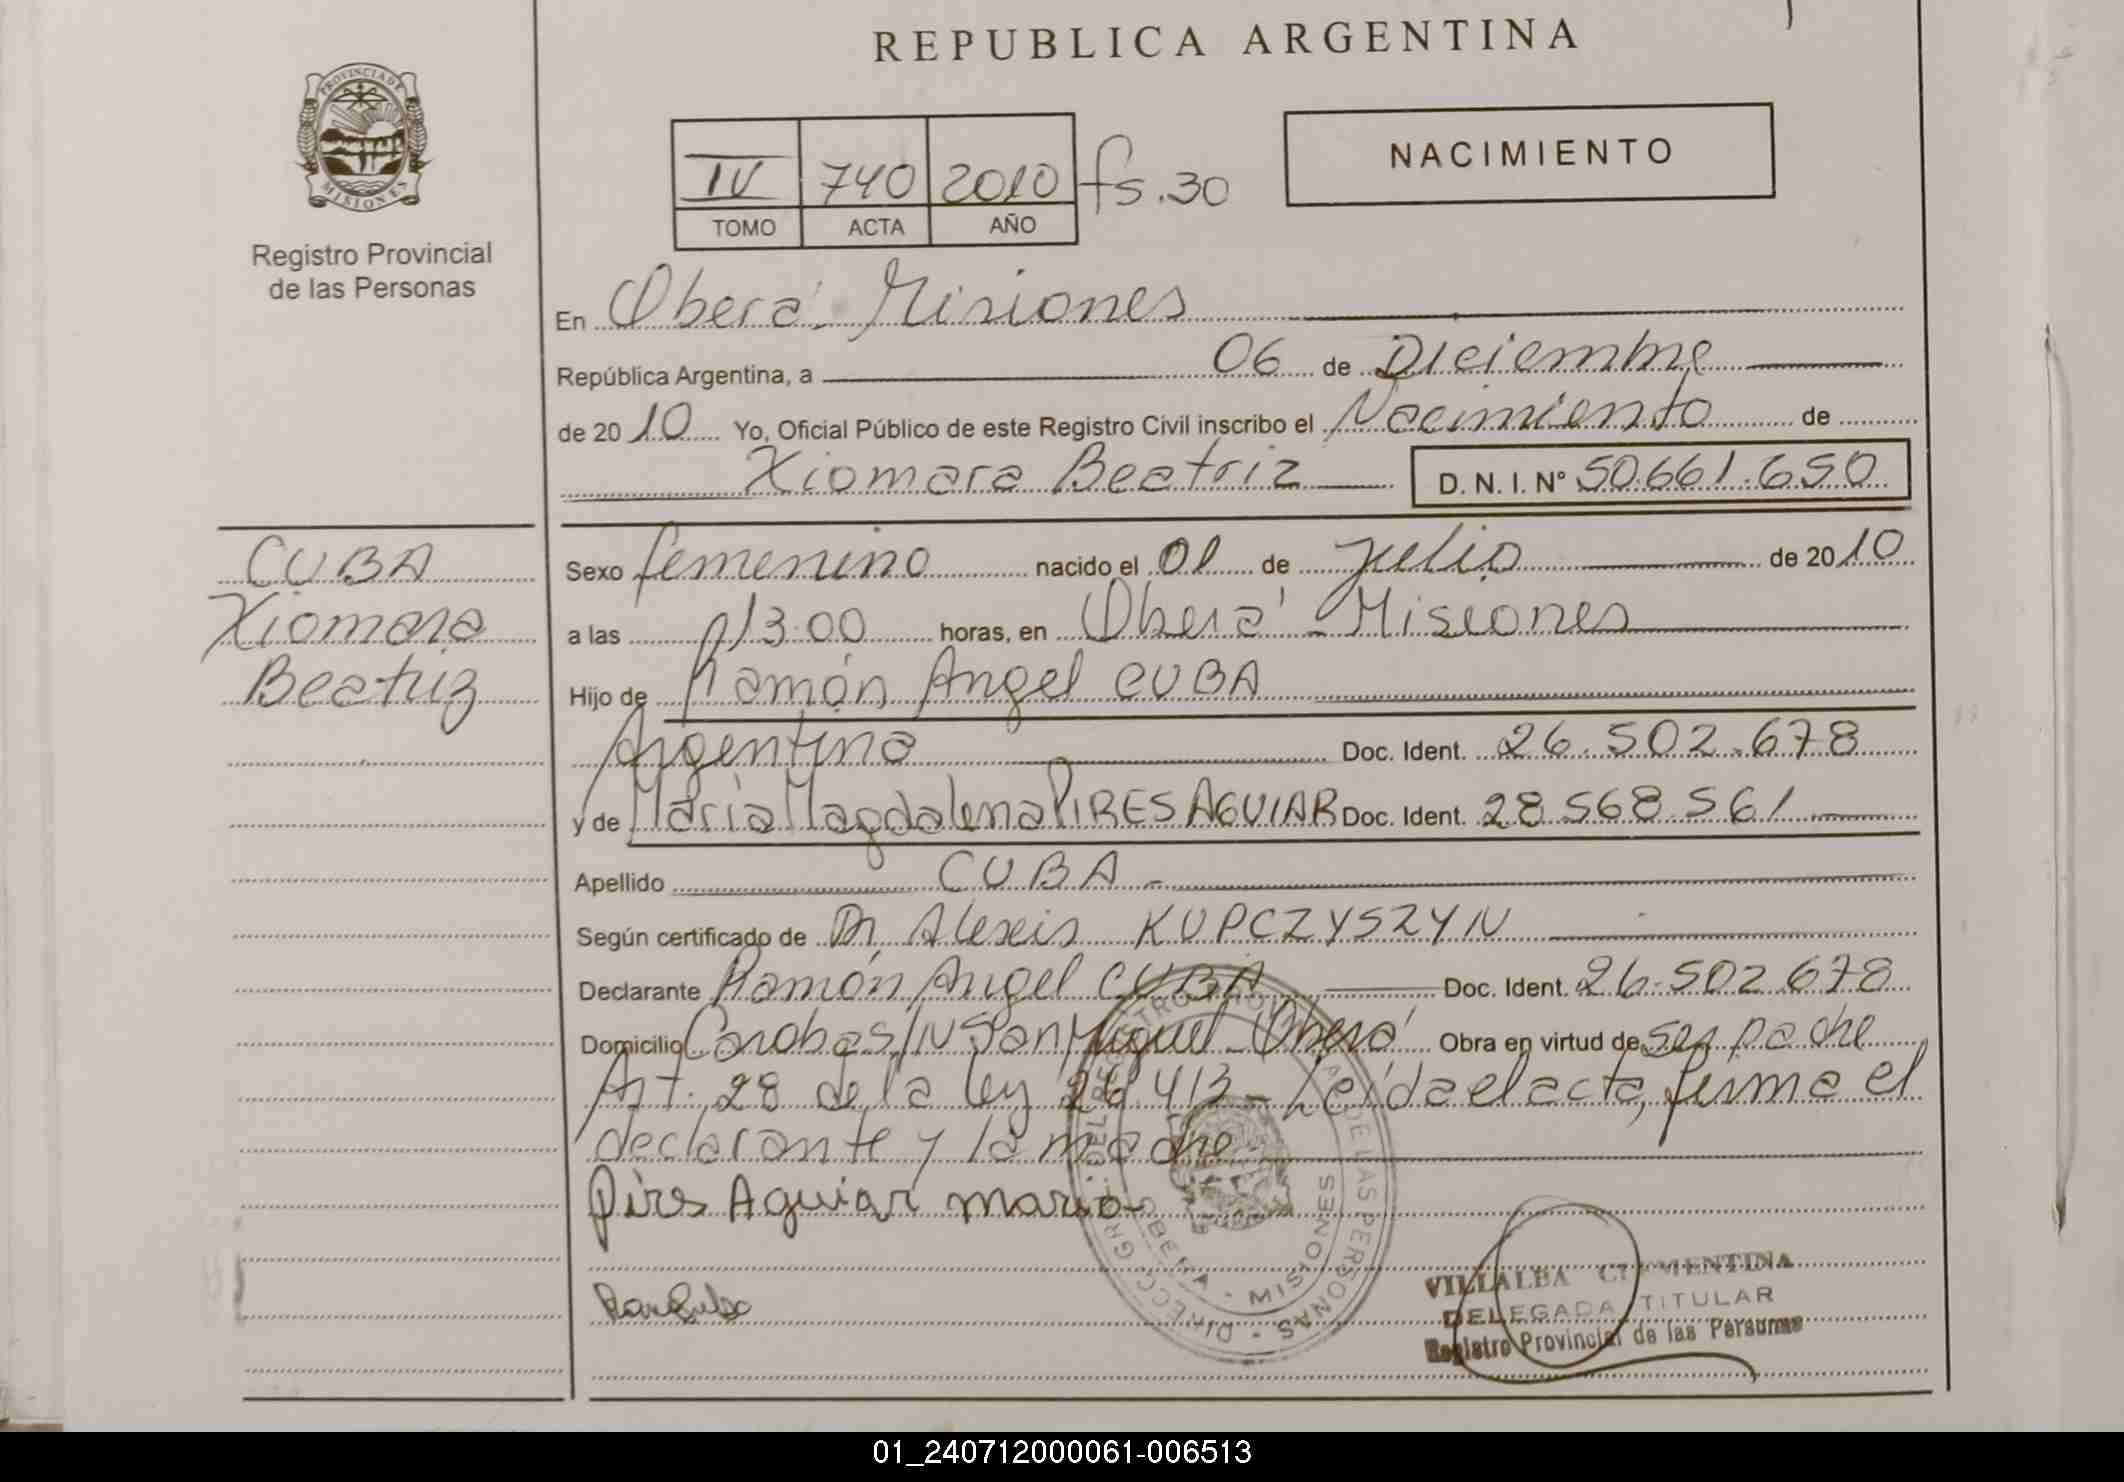 REPUBLICA ARGENTINA
PROVINCIA DE MISIONES
Registro Provincial
de las Personas
IV 740 2010 fs.30
TOMO ACTA AÑO
NACIMIENTO
En Oberá - Misiones
República Argentina, a 06 de Diciembre
de 2010 Yo, Oficial Público de este Registro Civil inscribo el Nacimiento de
Xiomara Beatriz D. N. I. N° 50.661.650
CUBA
Xiomara
Beatriz
Sexo femenino nacido el 01 de Julio de 2010
a las 13.00 horas, en Oberá - Misiones
Hijo de Ramón Angel CUBA
Argentina Doc. Ident. 26.502.678
y de María Magdalena PIRES AGUIAR Doc. Ident. 28.568.561
Apellido CUBA -
Según certificado de Dr. Alexis KUPCZYSZYN
Declarante Ramón Angel CUBA Doc. Ident. 26.502.678
Domicilio S/N San Miguel - Oberá Obra en virtud de ser padre
Art. 28 de la ley 26.413 - Leída el acta, firma el
declarante y la madre
Pires Aguiar maria
VILLALBA CLEMENTINA
DELEGADA TITULAR
Registro Provincial de las Personas
OBERA - MISIONES
01_240712000061-006513